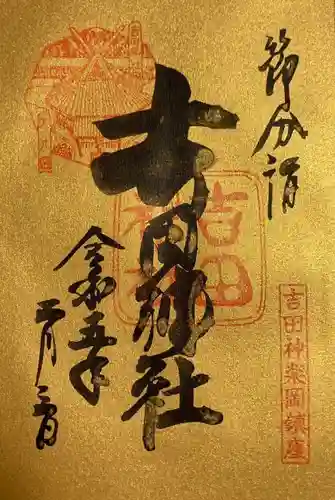 節分詣
吉田神社
令和五年
二月三日
吉田神社
吉田神楽岡鎮座